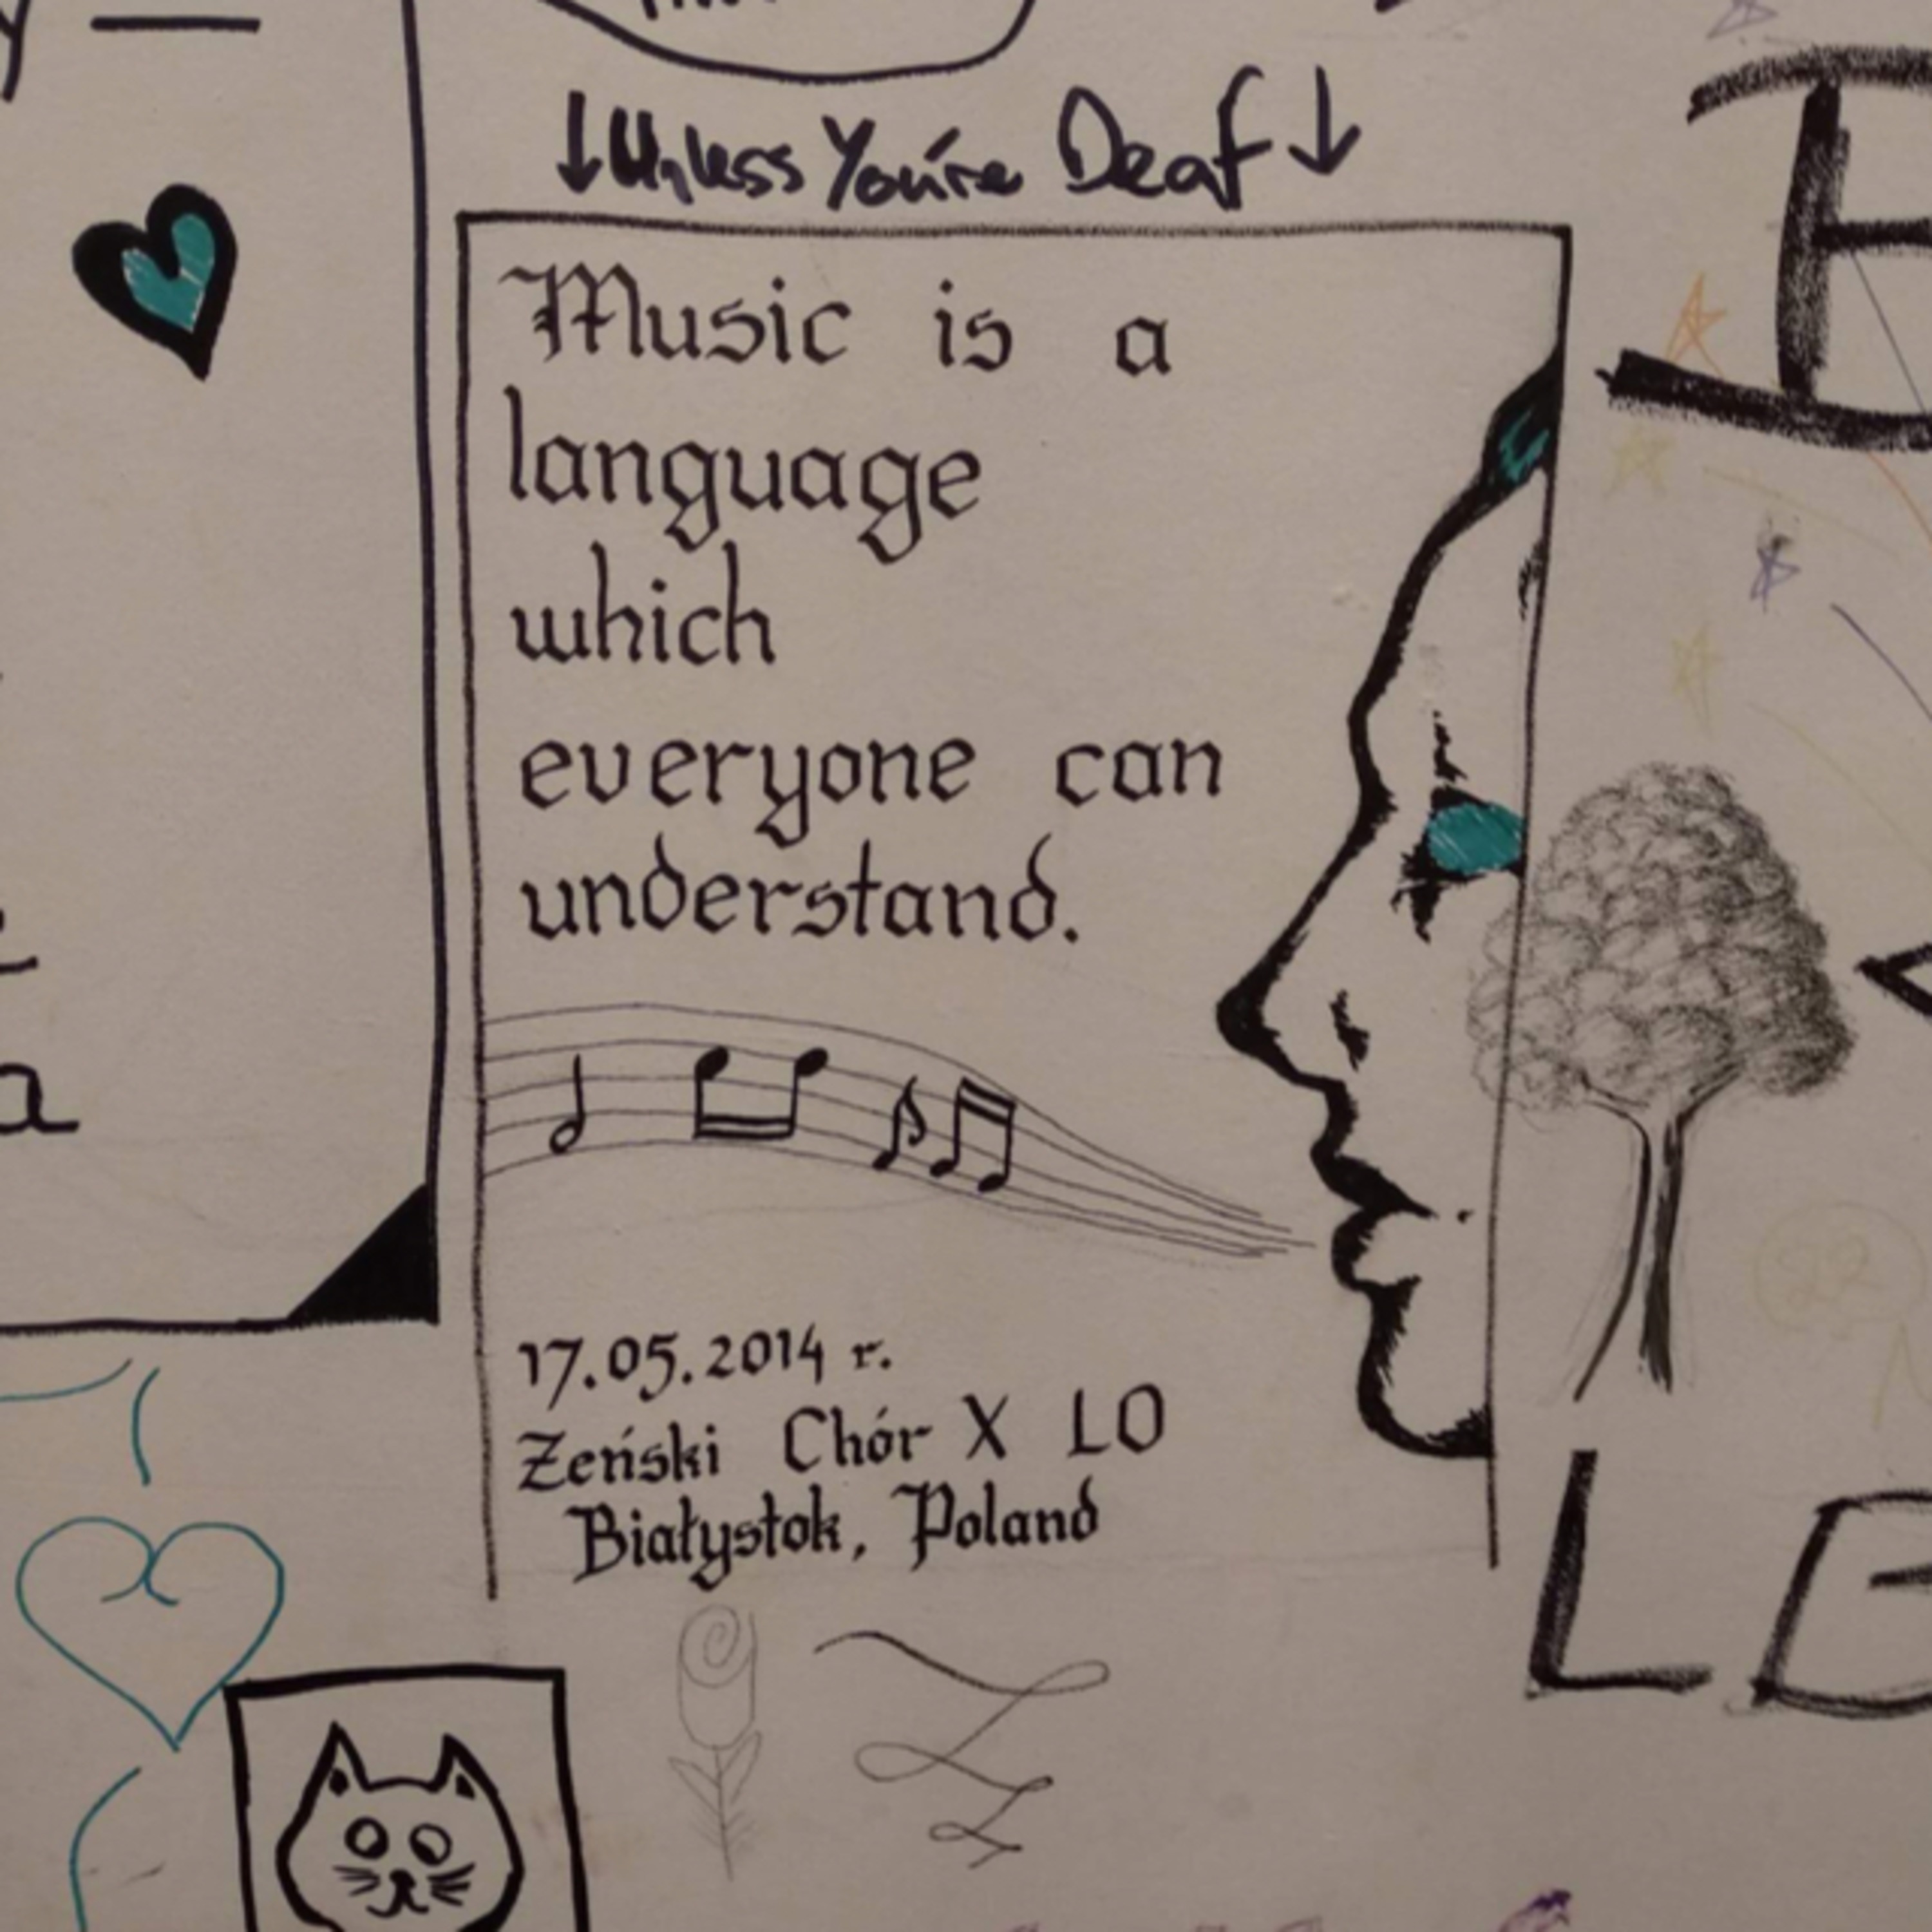 ↓Unless You're Deaf↓
Music is a
language
which
everyone can
understand.
17.05.2014 r.
Żeński Chór X LO
Białystok, Poland